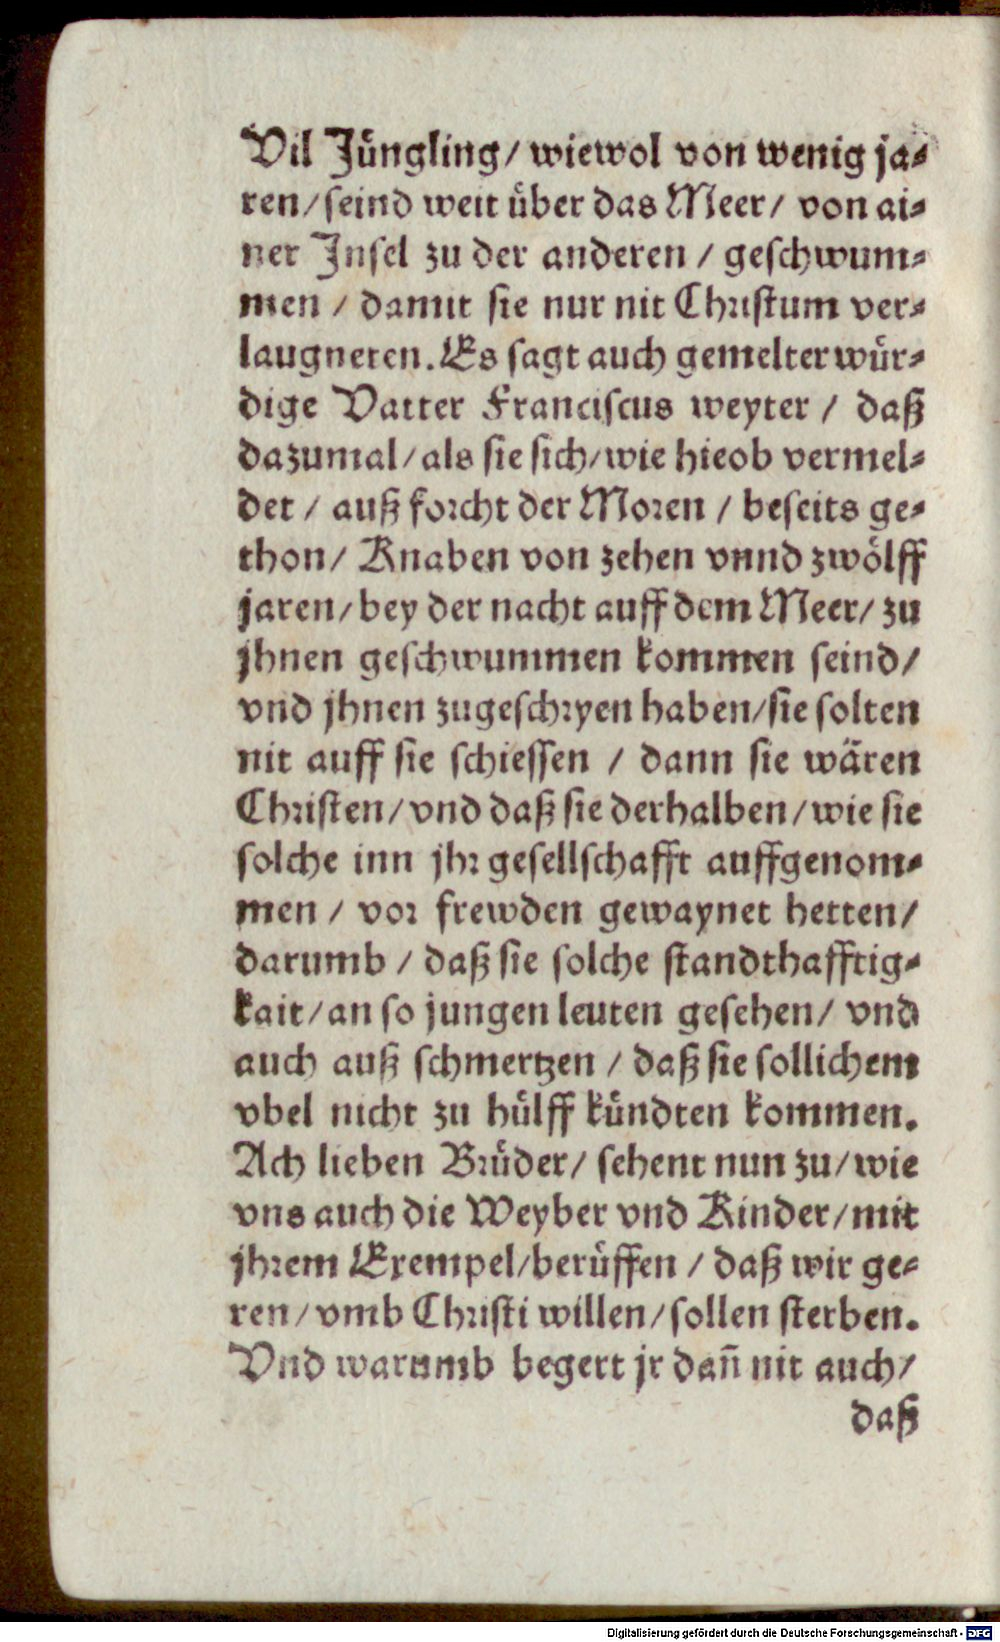 Vil Jüngling/ wiewol von wenig ja-
ren/ seind weit über das Meer/ von ai-
ner Insel zu der anderen / geschwum-
men / damit sie nur nit Christum ver-
laugneten. Es sagt auch gemelter wür-
dige Vatter Franciscus weyter / daß
dazumal/ als sie sich/ wie hieob vermel-
det / auß forcht der Moren / beseits ge-
thon/ Knaben von zehen vnnd zwölff
jaren/ bey der nacht auff dem Meer/ zu
jhnen geschwummen kommen seind/
vnd jhnen zugeschryen haben/ sie solten
nit auff sie schiessen / dann sie wären
Christen/ vnd daß sie derhalben/ wie sie
solche inn jhr gesellschafft auffgenom-
men / vor frewden gewaynet hetten/
darumb / daß sie solche standthafftig-
kait/ an so jungen leuten gesehen/ vnd
auch auß schmertzen / daß sie sollichem
vbel nicht zu hülff kündten kommen.
Ach lieben Brüder/ sehent nun zu/ wie
vns auch die Weyber vnd Kinder/ mit
jhrem Exempel/ berüffen / daß wir ge-
ren/ vmb Christi willen/ sollen sterben.
Vnd warumb begert jr dañ nit auch/
daß
Digitalisierung gefördert durch die Deutsche Forschungsgemeinschaft - DFG